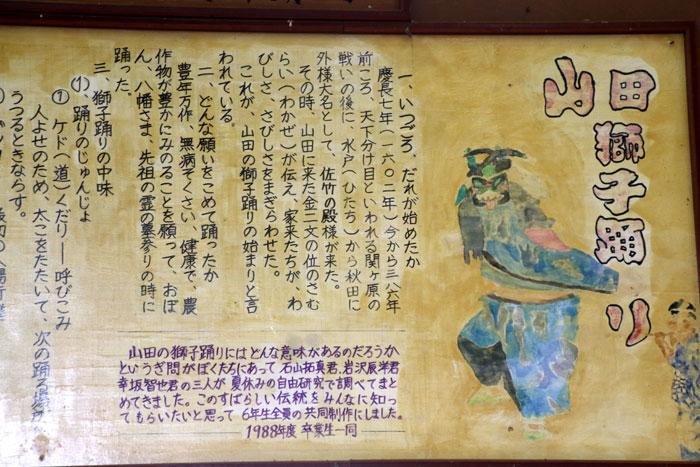 山田獅子踊り
一、いつごろ、だれが始めたか
慶長七年(一六〇二年)今から三八六年
前ころ、天下分け目といわれる関ヶ原の
戦いの後に、水戸(ひたち)から秋田に
外様大名として、佐竹の殿様が来た。
その時、山田に来た金二文の位のさむ
らい(わかぜ)が伝え、家来たちが、わ
びしさ、さびしさをまぎらわせた。
これが、山田の獅子踊りの始まりと言
われている。
二、どんな願いをこめて踊ったか
豊年万作、無病そくさい、健康で、農
作物が豊かにみのることを願って、おぼ
ん、八幡さま、先祖の霊の墓参りの時に
踊った。
三、獅子踊りの中味
(1)、踊りのじゅんじょ
① ケド(道)くだり——呼びこみ
人よせのため、太こをたたいて、次の踊る場所
うつるときならす。
山田の獅子踊りにはどんな意味があるのだろうか
というぎ問がぼくたちにあって 石山拓真君、岩沢辰洋君
幸坂智也君の三人が 夏休みの自由研究で調べてまと
めてきました。このすばらしい伝統をみんなに知っ
てもらいたいと思って 6年生全員の共同制作にしました。
1988年度 卒業生一同